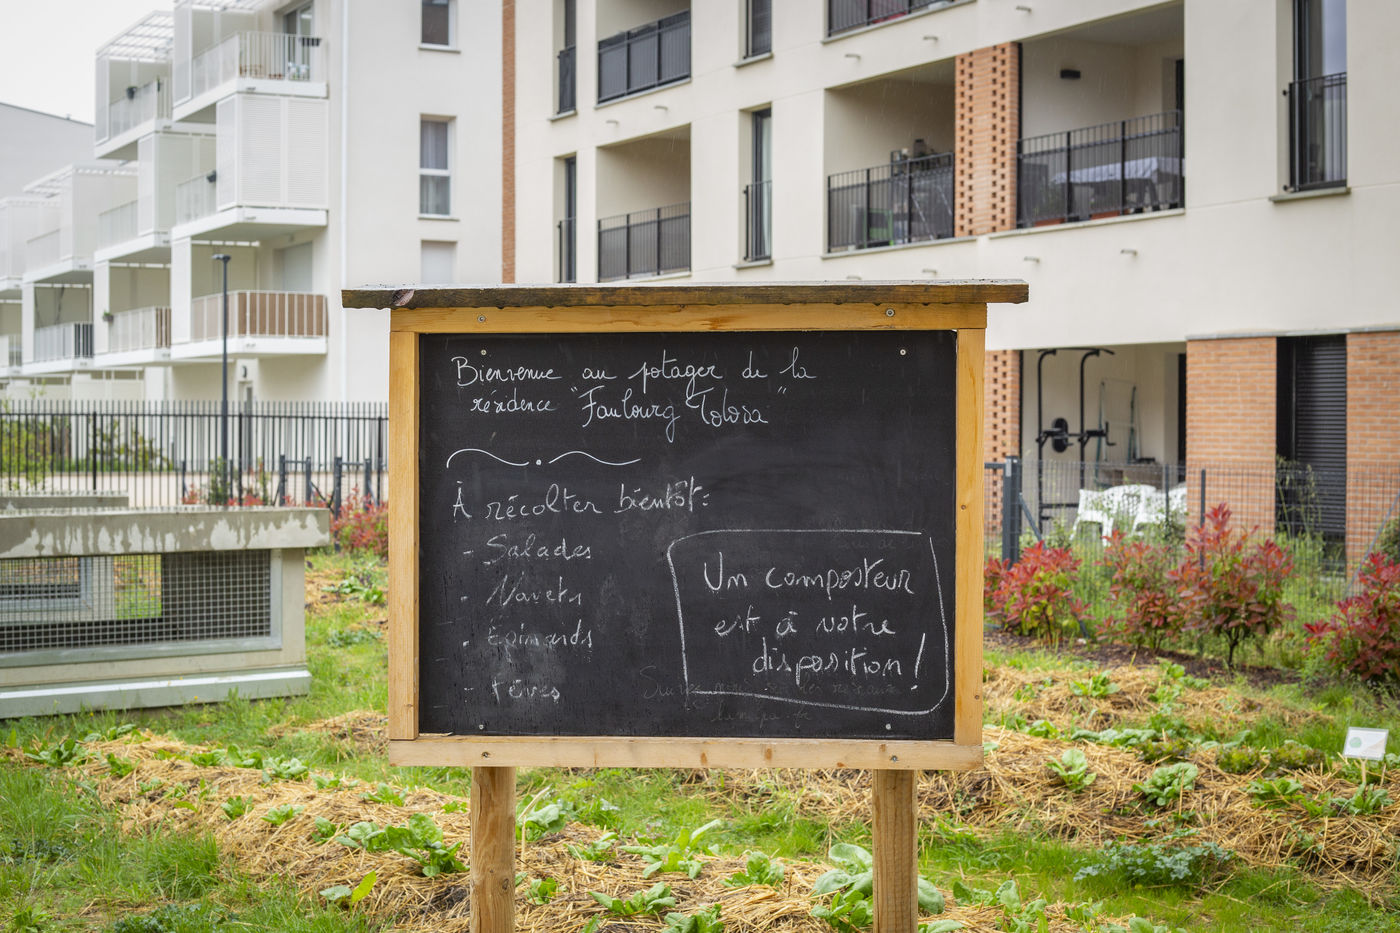 Bienvenue au potager de la
résidence "Faubourg Tolosa"
À récolter bientôt:
- Salades
- Navets
- Épinards
- Fèves
Un composteur
est à votre
disposition!